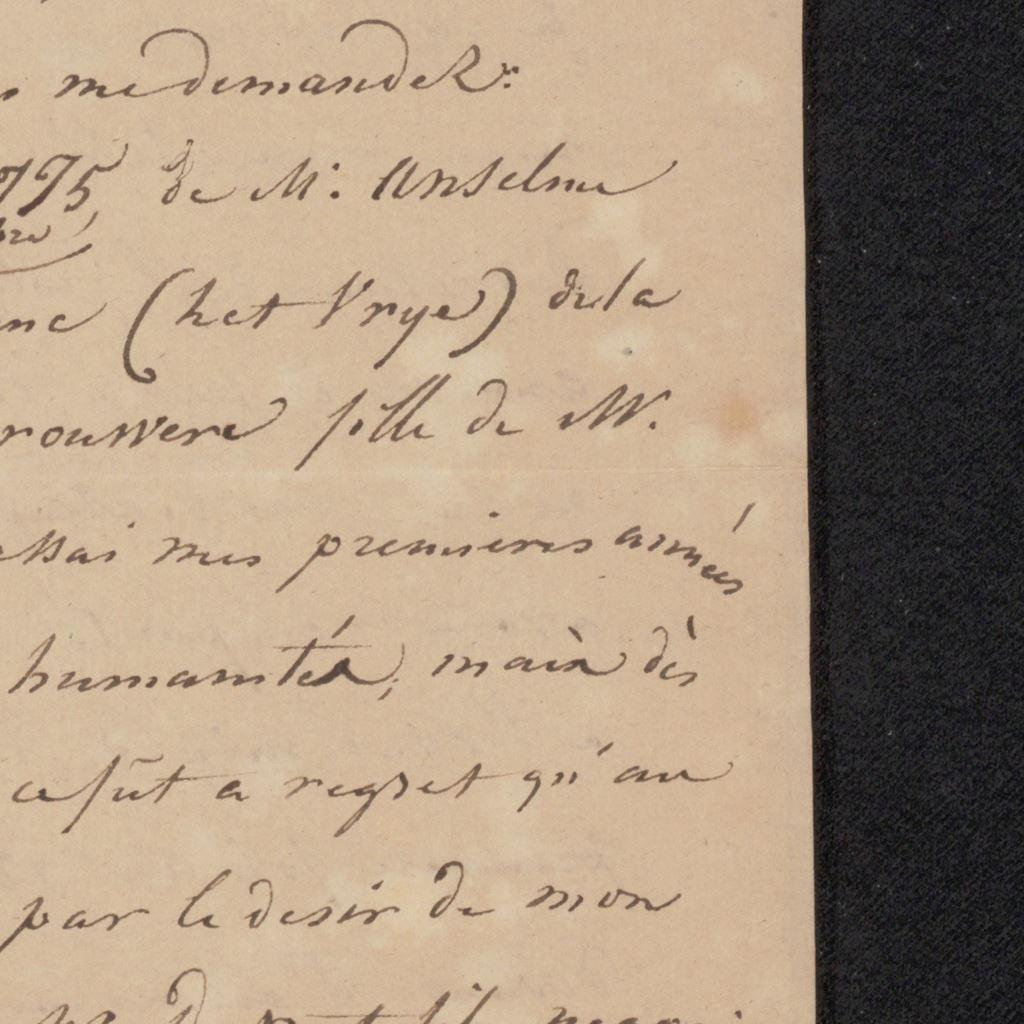 me demandez:
775, de Mr. Anselme
bre
(het Vrye) de la
rouwere fille de Mr.
mes premieres années
humanités, mais dès
ce fût a regret qu'au
par le desir de mon